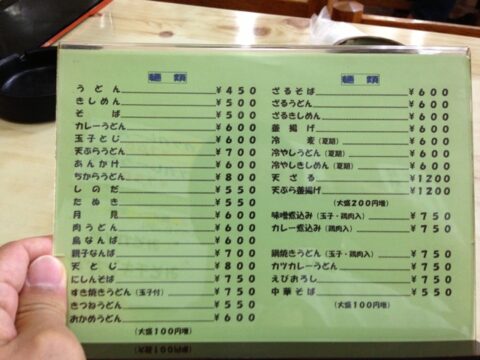 麺類
うどん ¥450
きしめん ¥500
そば ¥500
カレーうどん ¥600
玉子とじ ¥600
天ぷらうどん ¥700
あんかけ ¥600
ちからうどん ¥800
しのだ ¥550
たぬき ¥550
月見 ¥600
肉うどん ¥600
鳥なんば ¥600
親子なんば ¥700
天とじ ¥800
にしんそば ¥750
すき焼きうどん(玉子付) ¥750
きつねうどん ¥550
おかめうどん ¥600
(大盛100円増)
麺類
ざるそば ¥600
ざるうどん ¥600
ざるきしめん ¥600
釜揚げ ¥600
冷麦(夏期) ¥600
冷やしうどん(夏期) ¥600
冷やしきしめん(夏期) ¥600
天ざる ¥1200
天ぷら釜揚げ ¥1200
(大盛200円増)
味噌煮込み(玉子・鶏肉入) ¥750
カレー煮込み(玉子・鶏肉入) ¥750
鍋焼きうどん(玉子・鶏肉入) ¥750
カツカレーうどん ¥750
えびおろし ¥750
中華そば ¥550
(大盛100円増)